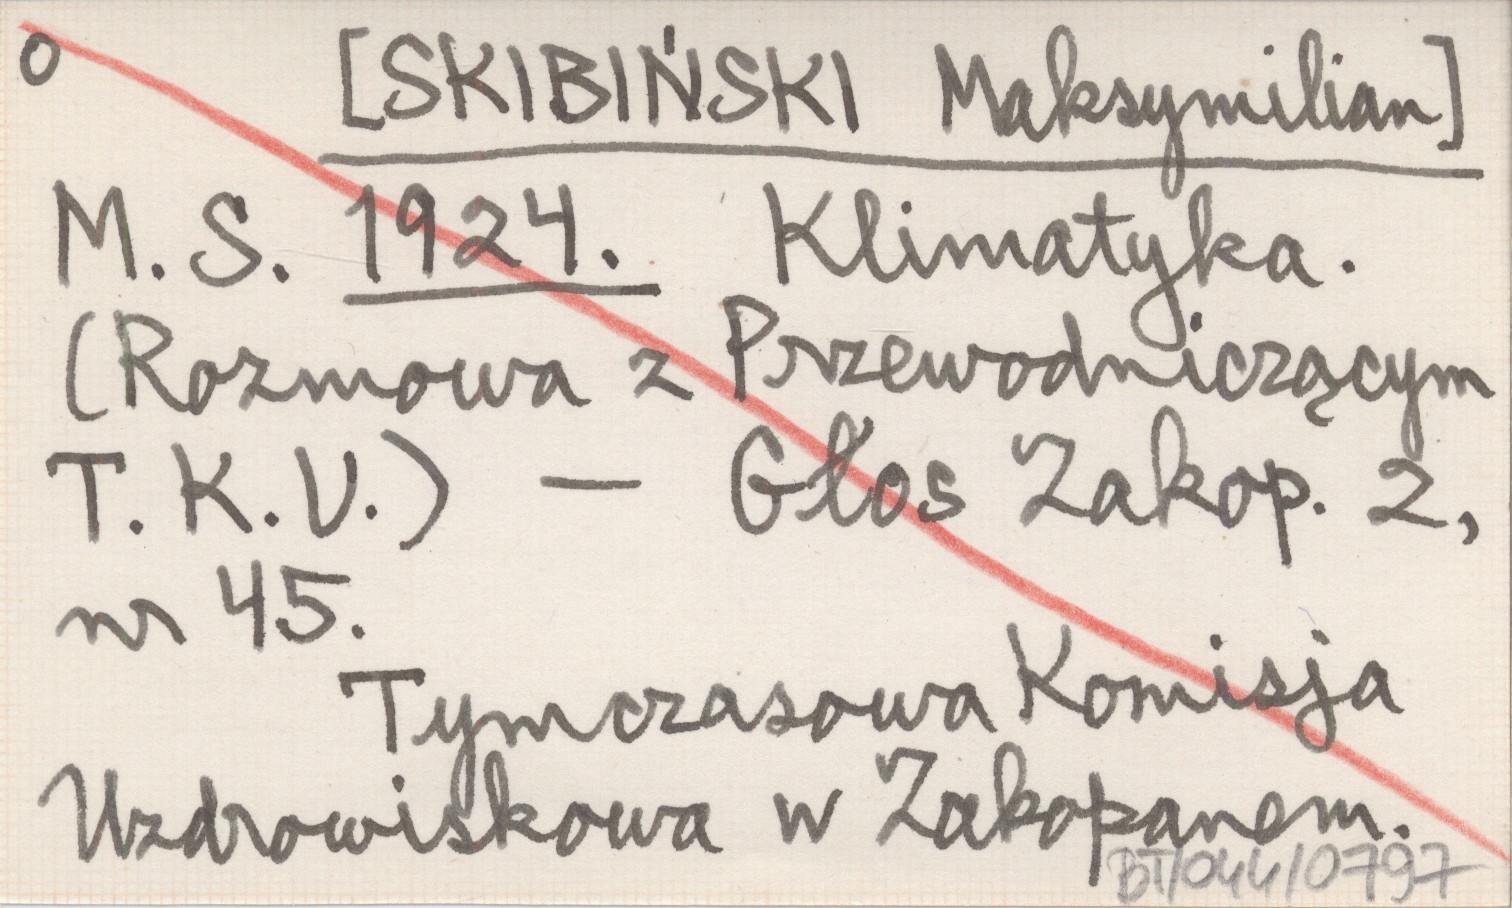 o [SKIBIŃSKI Maksymilian]
M. S. 1924. Klimatyka.
(Rozmowa z Przewodniczącym
T. K. U.) — Głos Zakop. 2,
nr 45.
Tymczasowa Komisja
Uzdrowiskowa w Zakopanem.
BT/044/0797